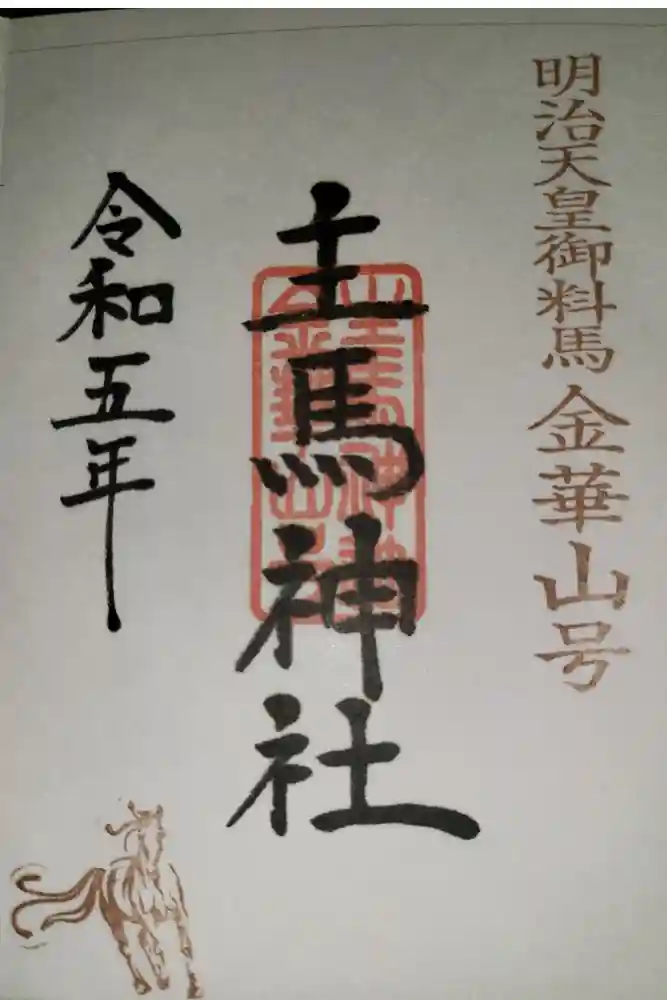 明治天皇御料馬 金華山号
主馬神社
主馬神社
金華山号
令和五年